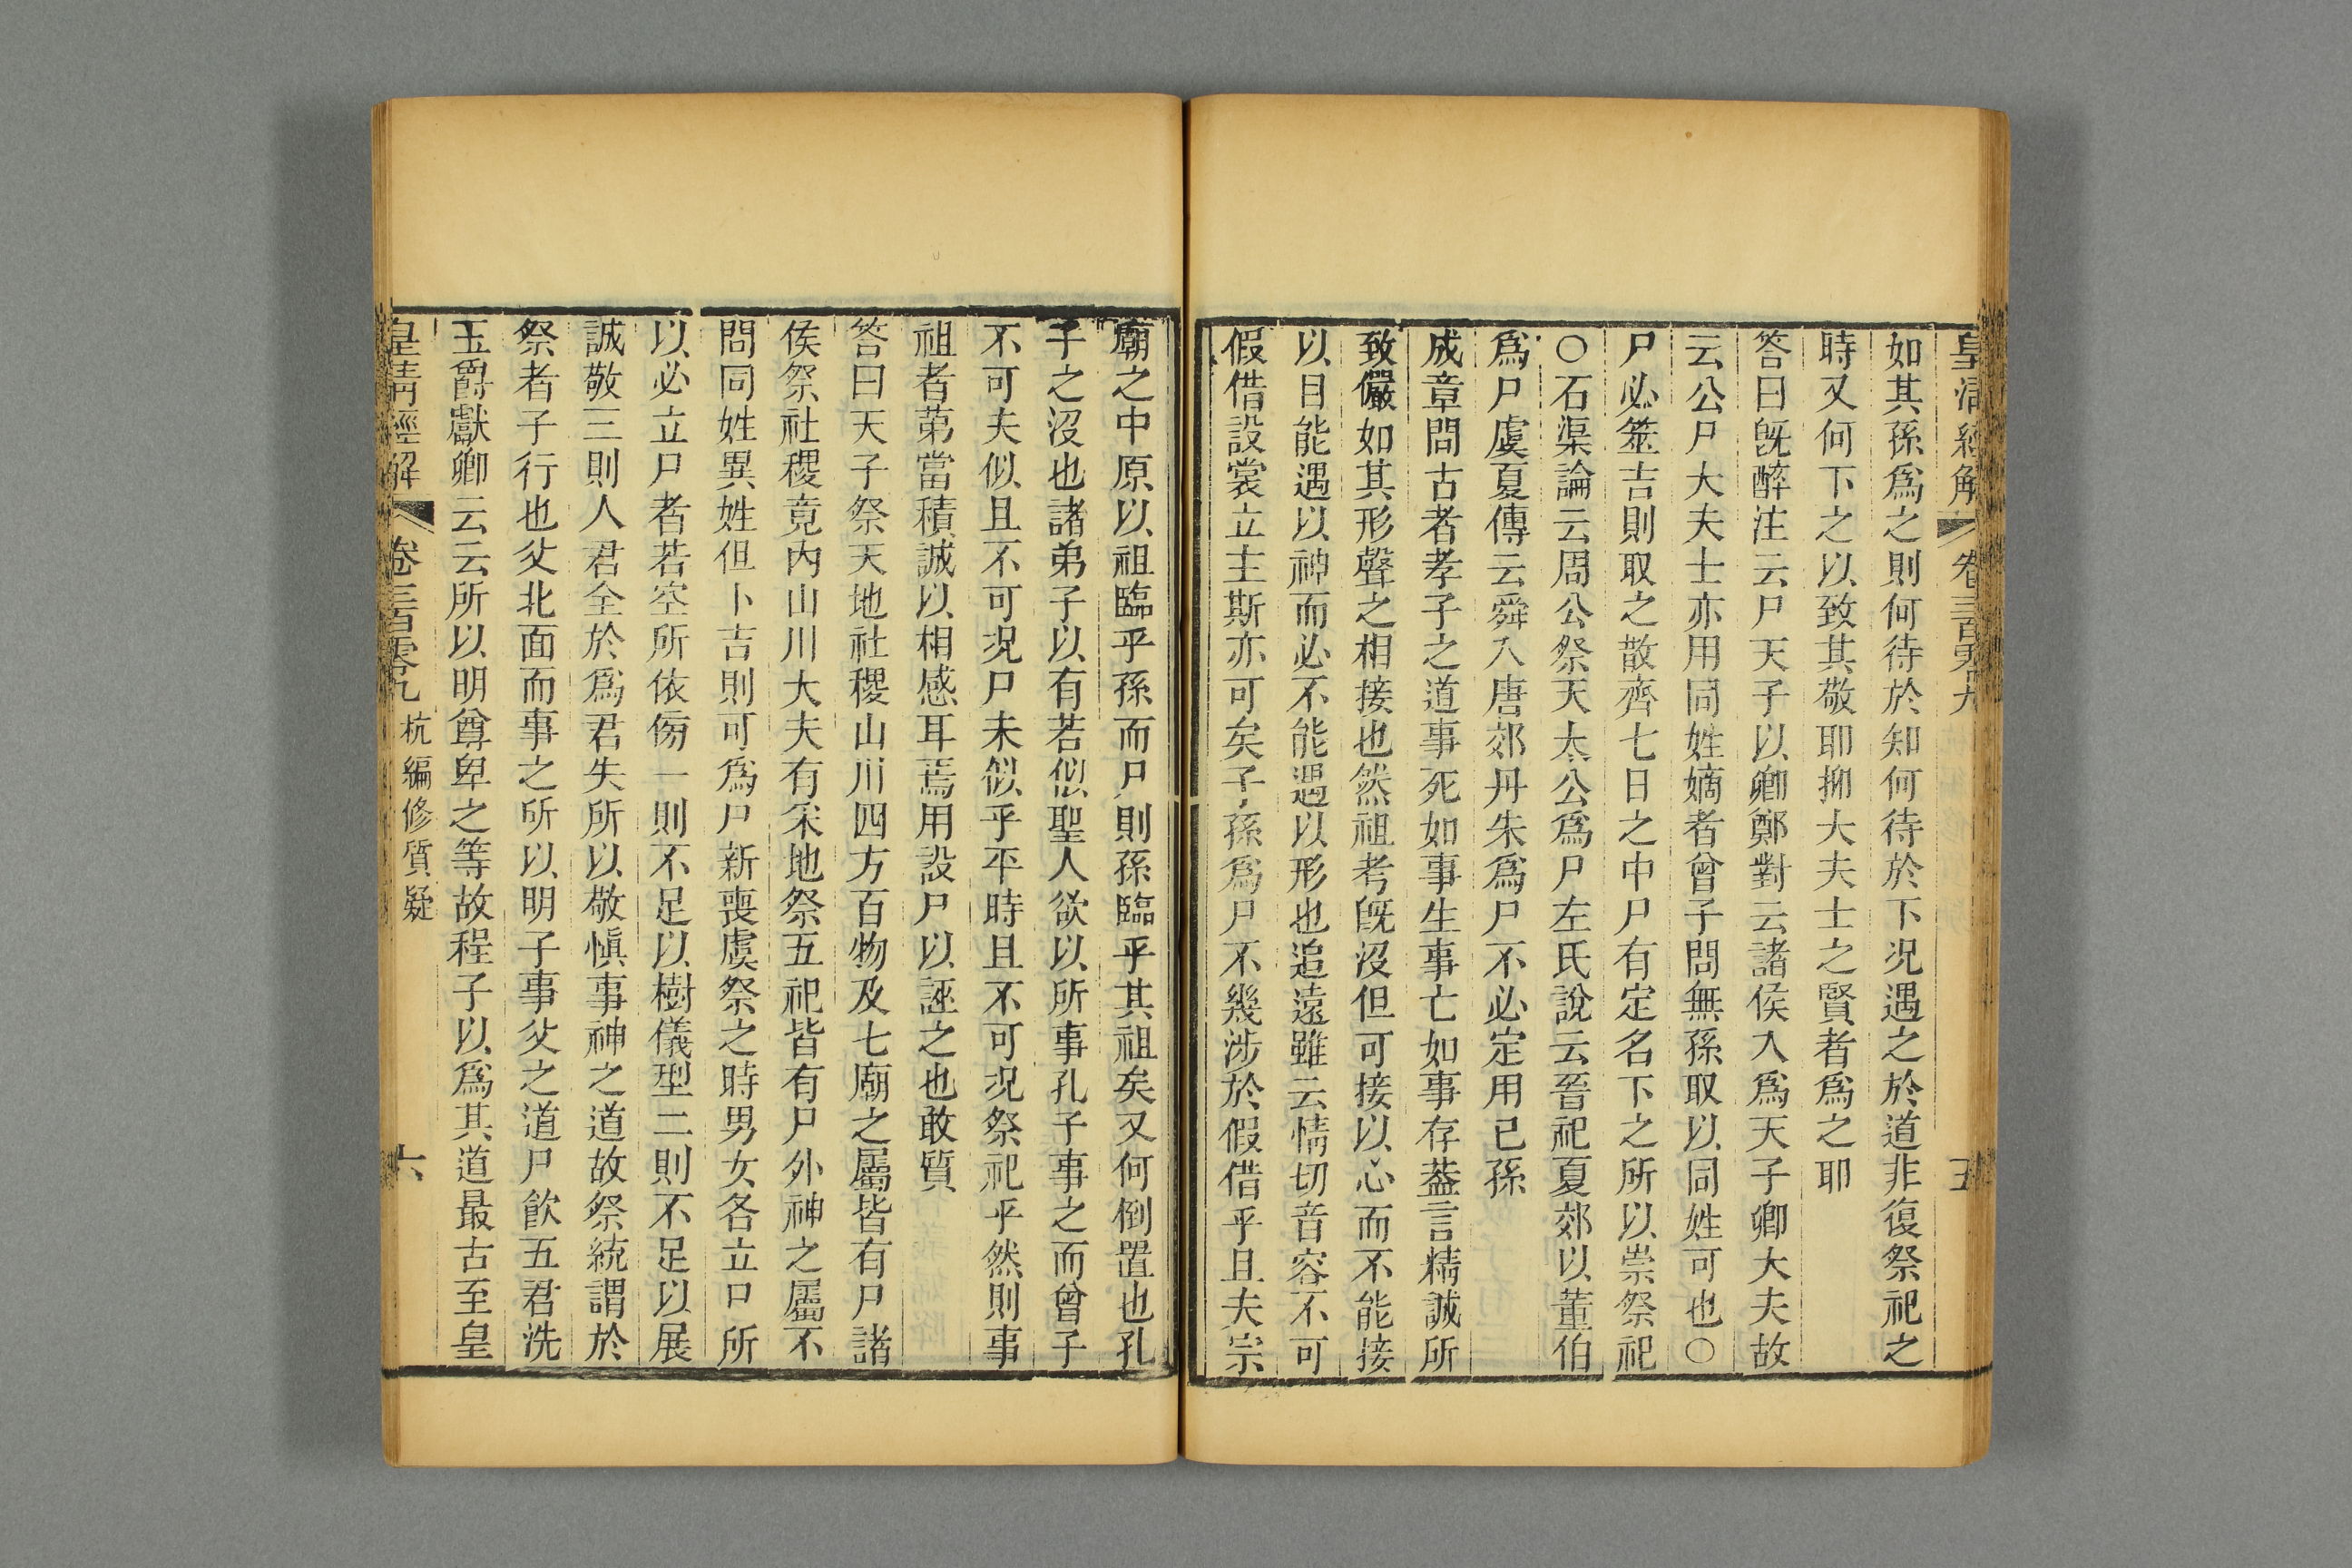 皇清經解 卷三百零九 五
如其孫爲之則何待於知何待於下况遇之於道非復祭祀之
時又何下之以致其敬耶抑大夫士之賢者爲之耶
答曰旣醉注云尸天子以卿鄭對云諸侯入爲天子卿大夫故
云公尸大夫士亦用同姓嫡者曾子問無孫取以同姓可也〇
尸必筮吉則取之散齊七日之中尸有定名下之所以崇祭祀
〇石渠論云周公祭天太公爲尸左氏說云晉祀夏郊以董伯
爲尸虞夏傳云舜入唐郊丹朱爲尸不必定用已孫
成章問古者孝子之道事死如事生事亡如事存葢言精誠所
致儼如其形聲之相接也然祖考旣沒但可接以心而不能接
以目能遇以神而必不能遇以形也追遠雖云情切音容不可
假借設裳立主斯亦可矣子孫爲尸不幾涉於假借乎且夫宗
廟之中原以祖臨乎孫而尸則孫臨乎其祖矣又何倒置也孔
子之沒也諸弟子以有若似聖人欲以所事孔子事之而曾子
不可夫似且不可况尸未似乎平時且不可况祭祀乎然則事
祖者苐當積誠以相感耳焉用設尸以誣之也敢質
答曰天子祭天地社稷山川四方百物及七廟之屬皆有尸諸
侯祭社稷竟內山川大夫有采地祭五祀皆有尸外神之屬不
問同姓異姓但卜吉則可爲尸新喪虞祭之時男女各立尸所
以必立尸者若空所依傍一則不足以樹儀型二則不足以展
誠敬三則人君全於爲君失所以敬愼事神之道故祭統謂於
祭者子行也父北面而事之所以明子事父之道尸飮五君洗
玉爵獻卿云云所以明尊卑之等故程子以爲其道最古至皇
皇清經解 卷三百零九 杭編修質疑 六